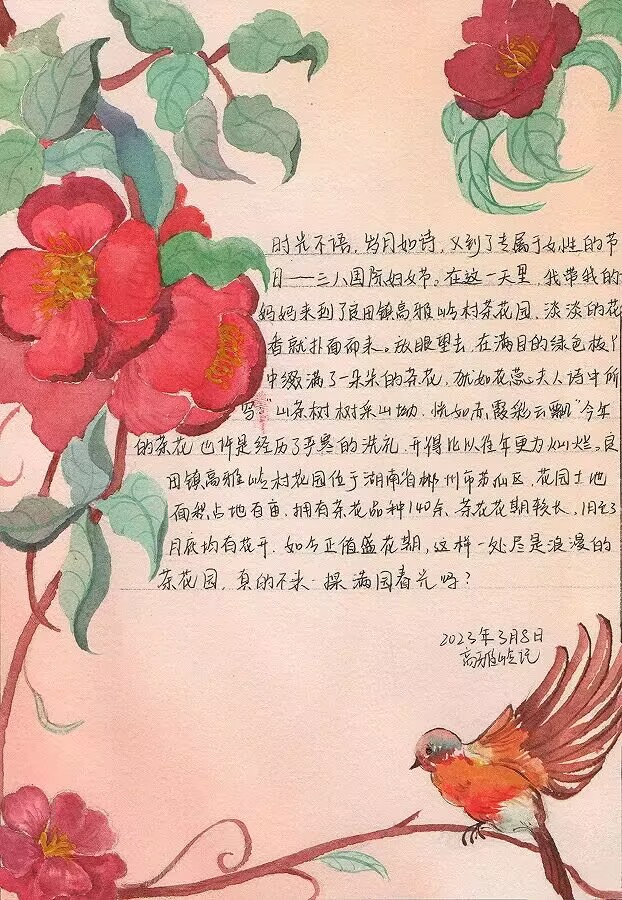 时光不语，岁月如诗，又到了专属于女性的节
日——三八国际妇女节。在这一天里，我带我的
妈妈来到了良田镇高雅岭村茶花园，淡淡的花
香就扑面而来。放眼望去，在满目的绿色枝丫
中缀满了一朵朵的茶花，犹如花蕊夫人诗中所
写“山茶树树采山坳，恍如赤霞彩云飘”今年
的茶花也许是经历了严寒的洗礼，开得比以往年更为灿烂。良
田镇高雅岭村花园位于湖南省郴州市苏仙区，花园土地
面积占地百亩，拥有茶花品种140余，茶花花期较长，1月之3
月底均有花开，如今正值盛花期，这样一处尽是浪漫的
茶花园，真的不来一探满园春光吗？
2023年3月8日
高雅岭记